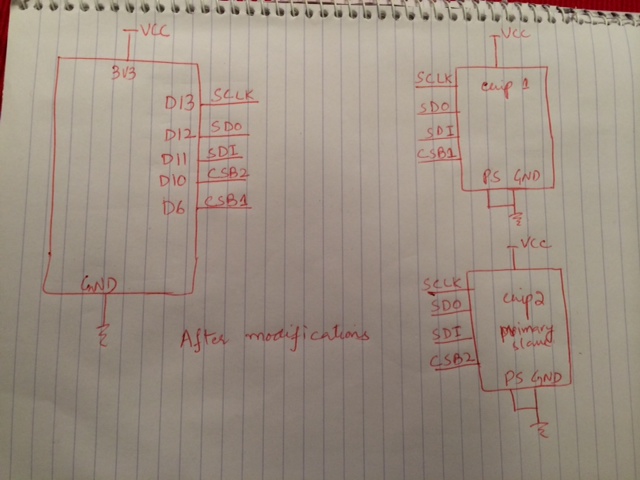 VCC
3V3
D13 SCLK
D12 SDO
D11 SDI
D10 CSB2
D6 CSB1
GND
After modifications
VCC
chip 1
SCLK
SDO
SDI
CSB1
PS GND
VCC
chip2
primary
slave
SCLK
SDO
SDI
CSB2
PS GND